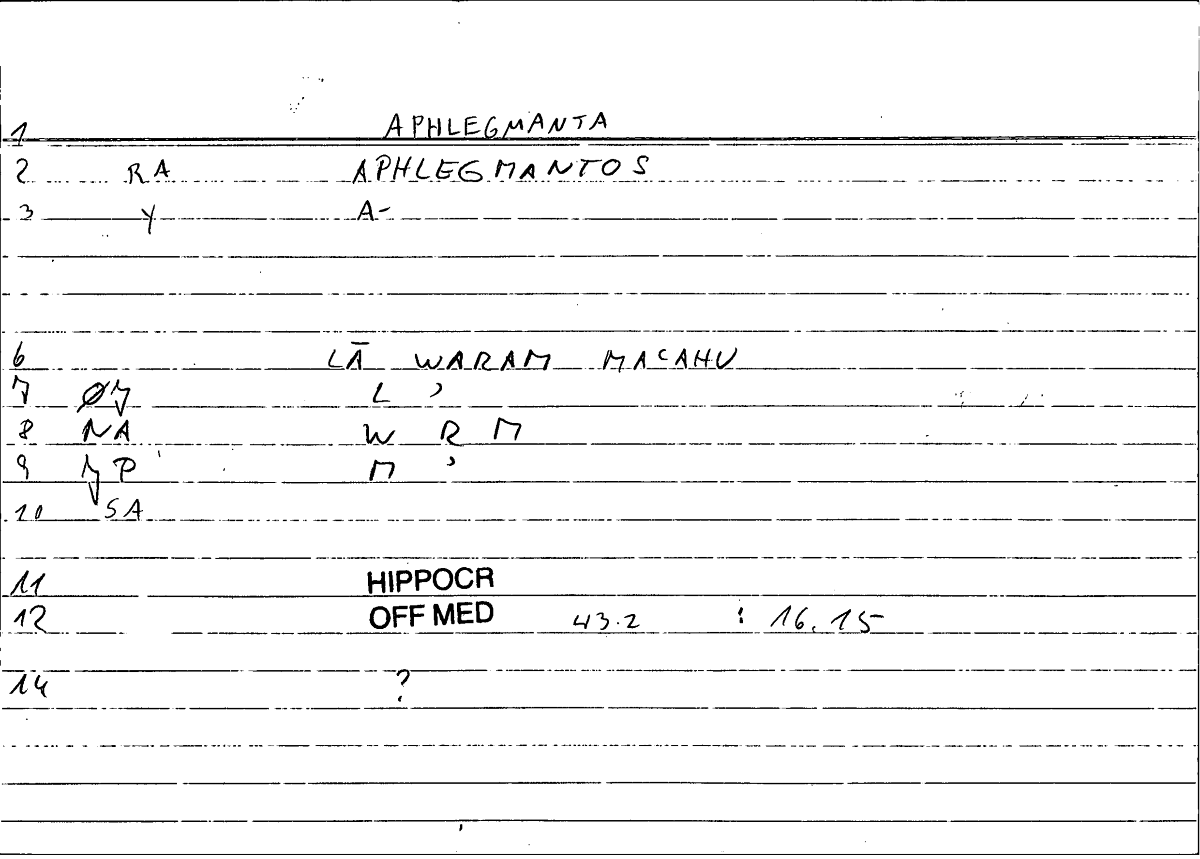 1 APHLEGMANTA
2 RA APHLEGMANTOS
3 Y A-
6 LĀ WARAM MAʿAHU
7 L ʾ
8 NA W R M
9 P M ʾ
10 SA
11 HIPPOCR
12 OFF MED 43.2 : 16.15
14 ?